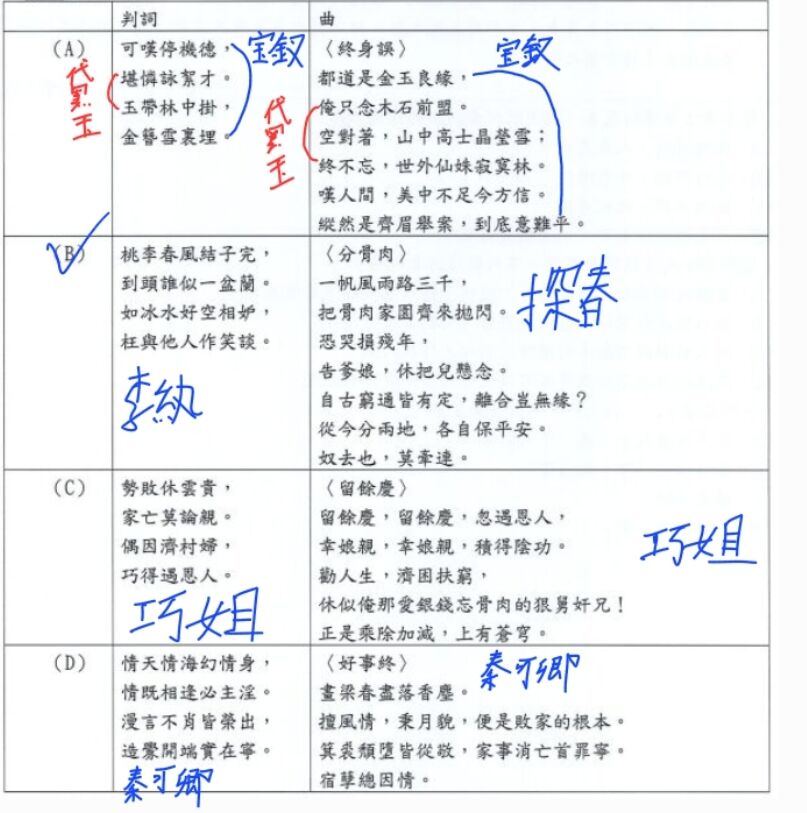 判詞 曲
(A) 可嘆停機德， 〈終身誤〉
宝釵 宝釵
堪憐詠絮才。 都道是金玉良緣，
代黑玉 玉帶林中掛， 俺只念木石前盟。
金簪雪裏埋。 空對著，山中高士晶瑩雪；
代黑玉 終不忘，世外仙姝寂寞林。
嘆人間，美中不足今方信。
縱然是齊眉舉案，到底意難平。
(B) 桃李春風結子完， 〈分骨肉〉
到頭誰似一盆蘭。 一帆風雨路三千，
如冰水好空相妒， 把骨肉家園齊來拋閃。 探春
枉與他人作笑談。 恐哭損殘年，
李紈 告爹娘，休把兒懸念。
自古窮通皆有定，離合豈無緣？
從今分兩地，各自保平安。
奴去也，莫牽連。
(C) 勢敗休雲貴， 〈留餘慶〉
家亡莫論親。 留餘慶，留餘慶，忽遇恩人，
偶因濟村婦， 幸娘親，幸娘親，積得陰功。 巧姐
巧得遇恩人。 勸人生，濟困扶窮，
巧姐 休似俺那愛銀錢忘骨肉的狠舅奸兄！
正是乘除加減，上有蒼穹。
(D) 情天情海幻情身， 〈好事終〉 秦可卿
情既相逢必主淫。 畫梁春盡落香塵。
漫言不肖皆榮出， 擅風情，秉月貌，便是敗家的根本。
造釁開端實在寧。 箕裘頹墮皆從敬，家事消亡首罪寧。
秦可卿 宿孽總因情。